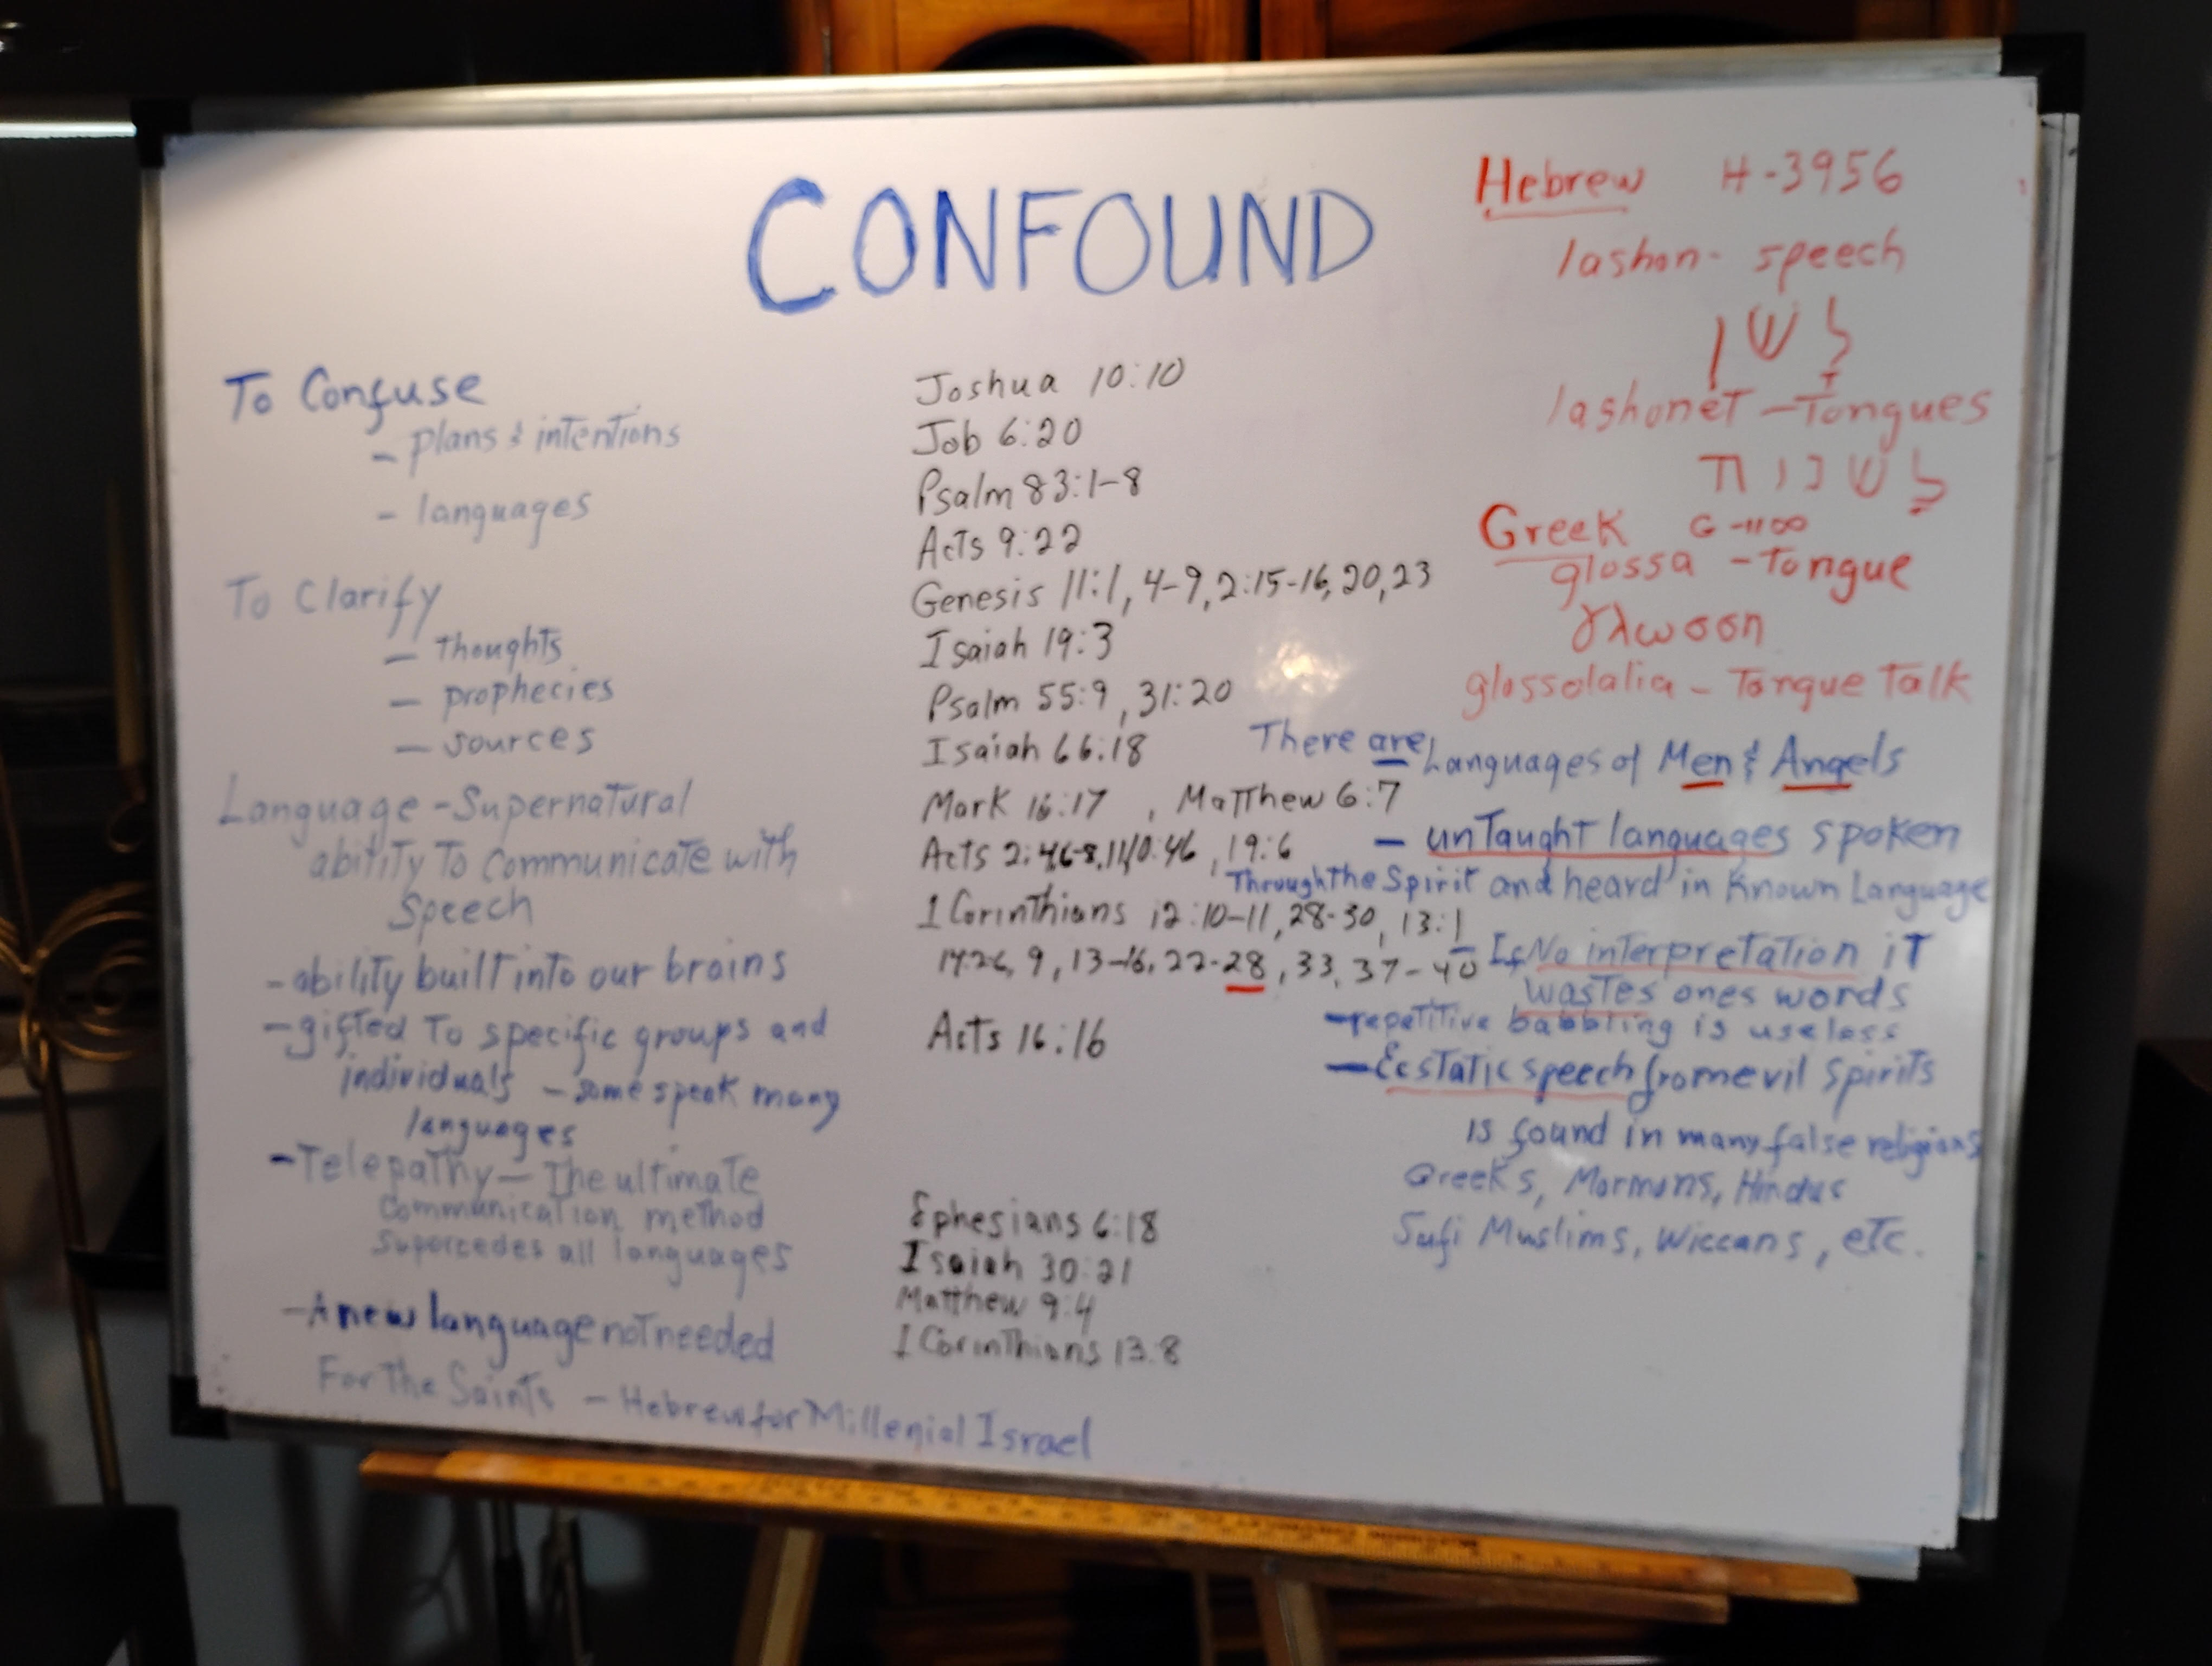 CONFOUND
To Confuse
- plans & intentions
- languages
To Clarify
- Thoughts
- prophecies
- sources
Language - Supernatural
ability To Communicate with
Speech
- ability built into our brains
- gifted To specific groups and
individuals - some speak many
languages
- Telepathy - The ultimate
Communication method
Supercedes all languages
- A new language not needed
For The Saints - Hebrew for Millenial Israel
Joshua 10:10
Job 6:20
Psalm 83:1-8
Acts 9:22
Genesis 11:1, 4-9, 2:15-16, 20, 23
Isaiah 19:3
Psalm 55:9, 31:20
Isaiah 66:18
Mark 16:17, Matthew 6:7
Acts 2:4,6-8,11,10:46, 19:6
1 Corinthians 12:10-11, 28-30, 13:1
14:2-6, 9, 13-16, 22-28, 33, 37-40
Acts 16:16
Ephesians 6:18
Isaiah 30:21
Matthew 9:4
1 Corinthians 13:8
Hebrew H-3956
lashon - speech
לשן
lashonet - Tongues
לשנות
Greek G-1100
glossa - Tongue
γλωσση
glossolalia - Tongue Talk
There are Languages of Men & Angels
- unTaught languages spoken
Through the Spirit and heard in Known Language
- If No interpretation it
wastes ones words
- repetitive babbling is useless
- Ecstatic speech from evil Spirits
is found in many false religions
Greeks, Mormons, Hindus
Sufi Muslims, Wiccans, etc.